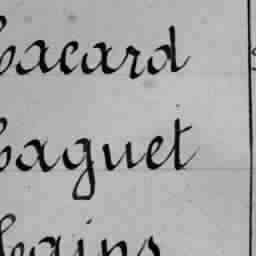 Bacard
Baguet
Bains